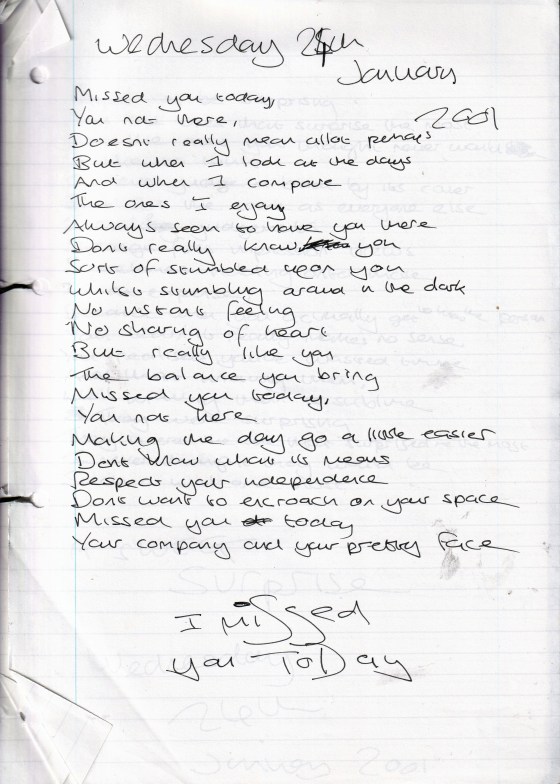 Wednesday 24th
January
2001
Missed you today,
You not there,
Doesnt really mean allot perhaps
But when I look at the days
And when I compare
The ones I enjoy
Always seem to have you there
Donts really know you
Sorts of stumbled upon you
whilst stumbling around in the dark
No instant feeling
No sharing of heart
But really like you
The balance you bring
Missed you today,
You not here
Making the day go a little easier
Dont know what its means
Respect your independence
Dont want to encroach on your space
Missed you today
Your company and your pretty face
I Missed
you ToDay
Surprise
Wednesday
24th
January 2001